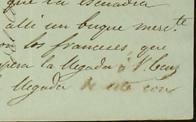 que la escuadra
alli un buque merc.te
on los franceses, que
pera la llegada á V. Cruz
llegada de este cor